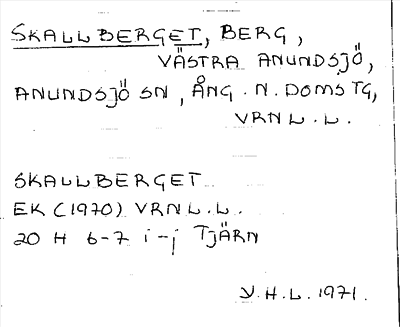 SKALLBERGET, BERG,
VÄSTRA ANUNDSJÖ,
ANUNDSJÖ SN, ÅNG. N. DOMSTG,
VRNL.L.
SKALLBERGET
EK (1970) VRNL.L.
20 H 6-7 i-j TJÄRN
V.H.L. 1971.